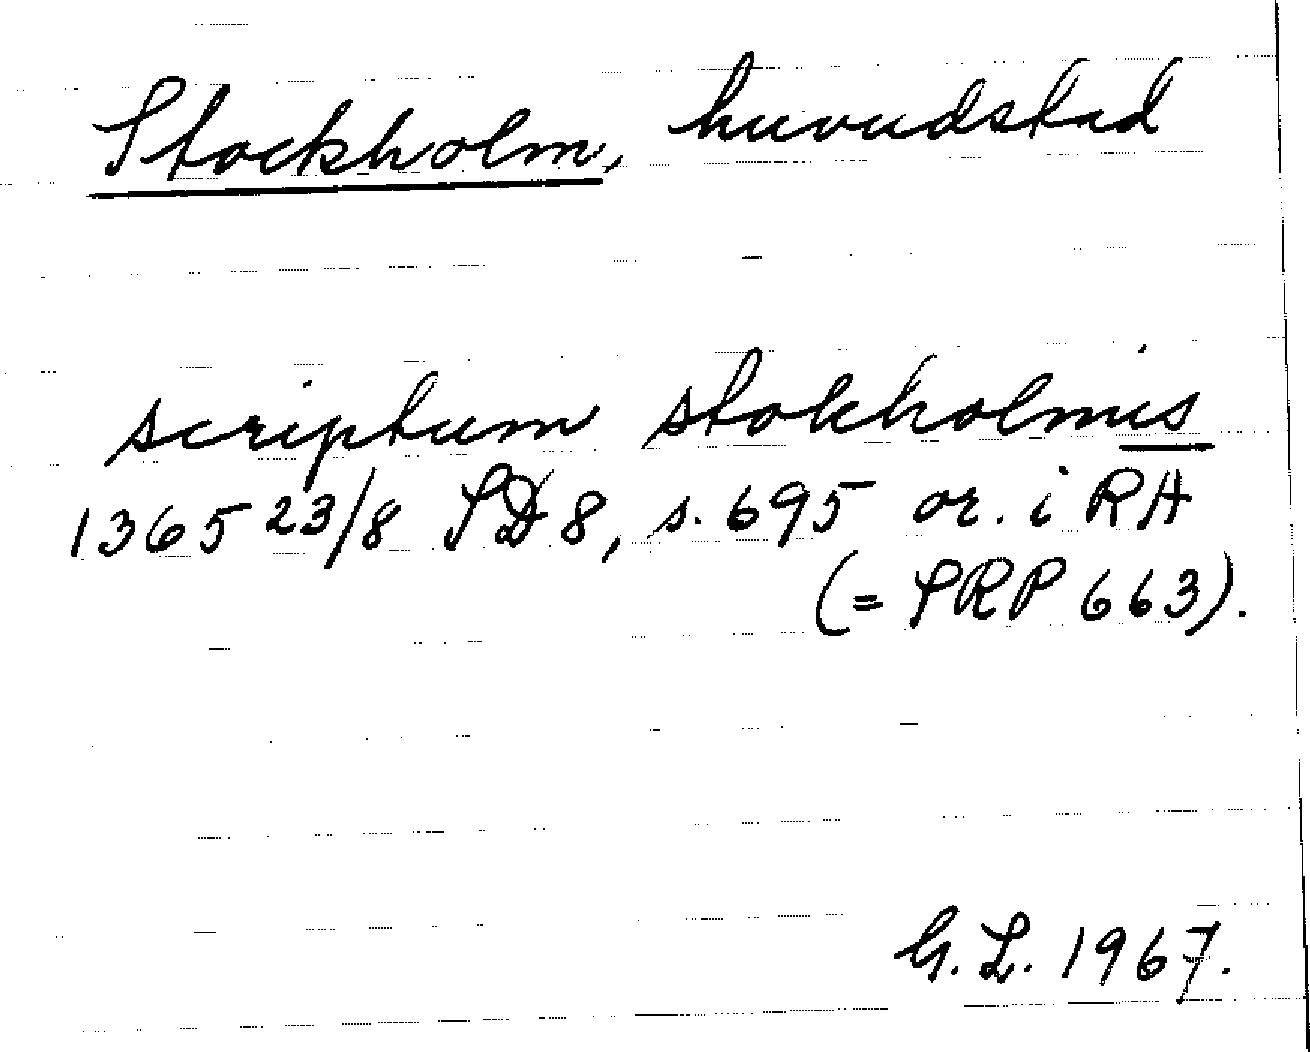 Stockholm, huvudstad
scriptum stokholmis
1365 23/8 SD 8, s. 695 or. i RA
(= SRP 663).
G. L. 1967.